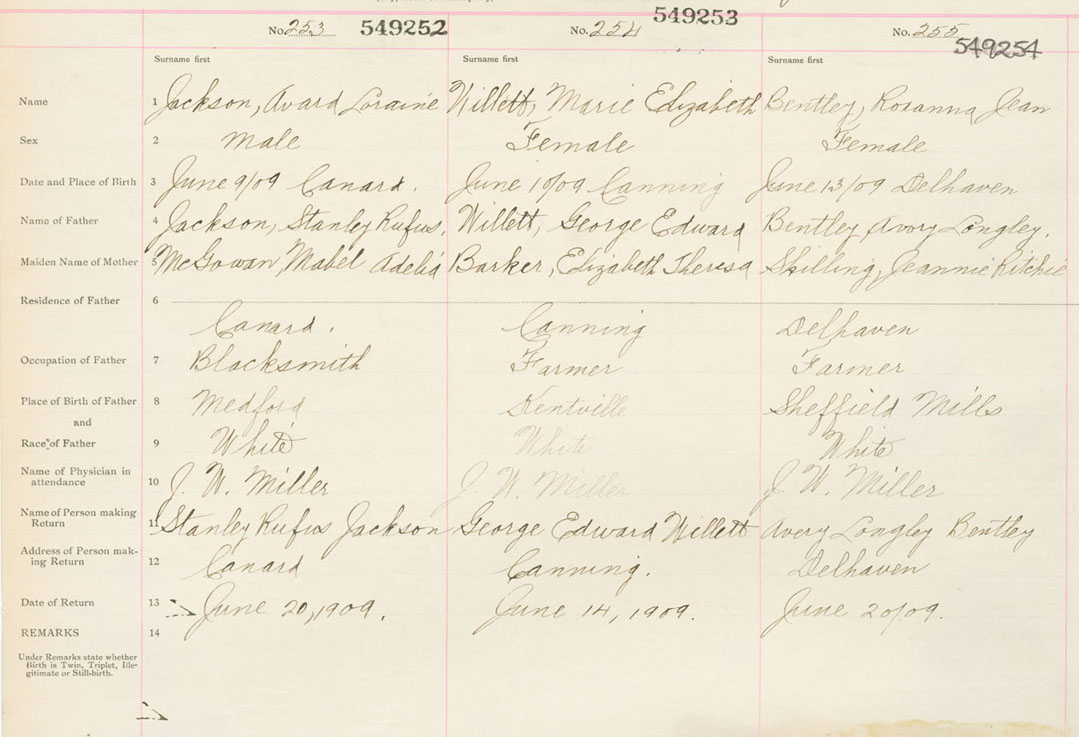 No. 253 549252 No. 254 549253 No. 255 549254
Surname first Surname first Surname first
Name 1 Jackson, Avard Loraine Willett, Marie Elizabeth Bentley, Rosanna Jean
Sex 2 Male Female Female
Date and Place of Birth 3 June 9/09 Canard. June 10/09 Canning June 13/09 Delhaven
Name of Father 4 Jackson, Stanley Rufus, Willett, George Edward Bentley, Avory Longley.
Maiden Name of Mother 5 McGowan, Mabel Adelia Barker, Elizabeth Theresa Skilling, Jeannie Ritchie
Residence of Father 6
Canard. Canning Delhaven
Occupation of Father 7 Blacksmith Farmer Farmer
Place of Birth of Father 8 Medford Kentville Sheffield Mills
and
Race of Father 9 White White White
Name of Physician in
attendance 10 J. W. Miller J. W. Miller J. W. Miller
Name of Person making
Return 11 Stanley Rufus Jackson George Edward Willett Avery Longley Bentley
Address of Person mak-
ing Return 12 Canard Canning. Delhaven
Date of Return 13 June 20, 1909. June 14, 1909. June 20/09.
REMARKS 14
Under Remarks state whether
Birth is Twin, Triplet, Ille-
gitimate or Still-birth.